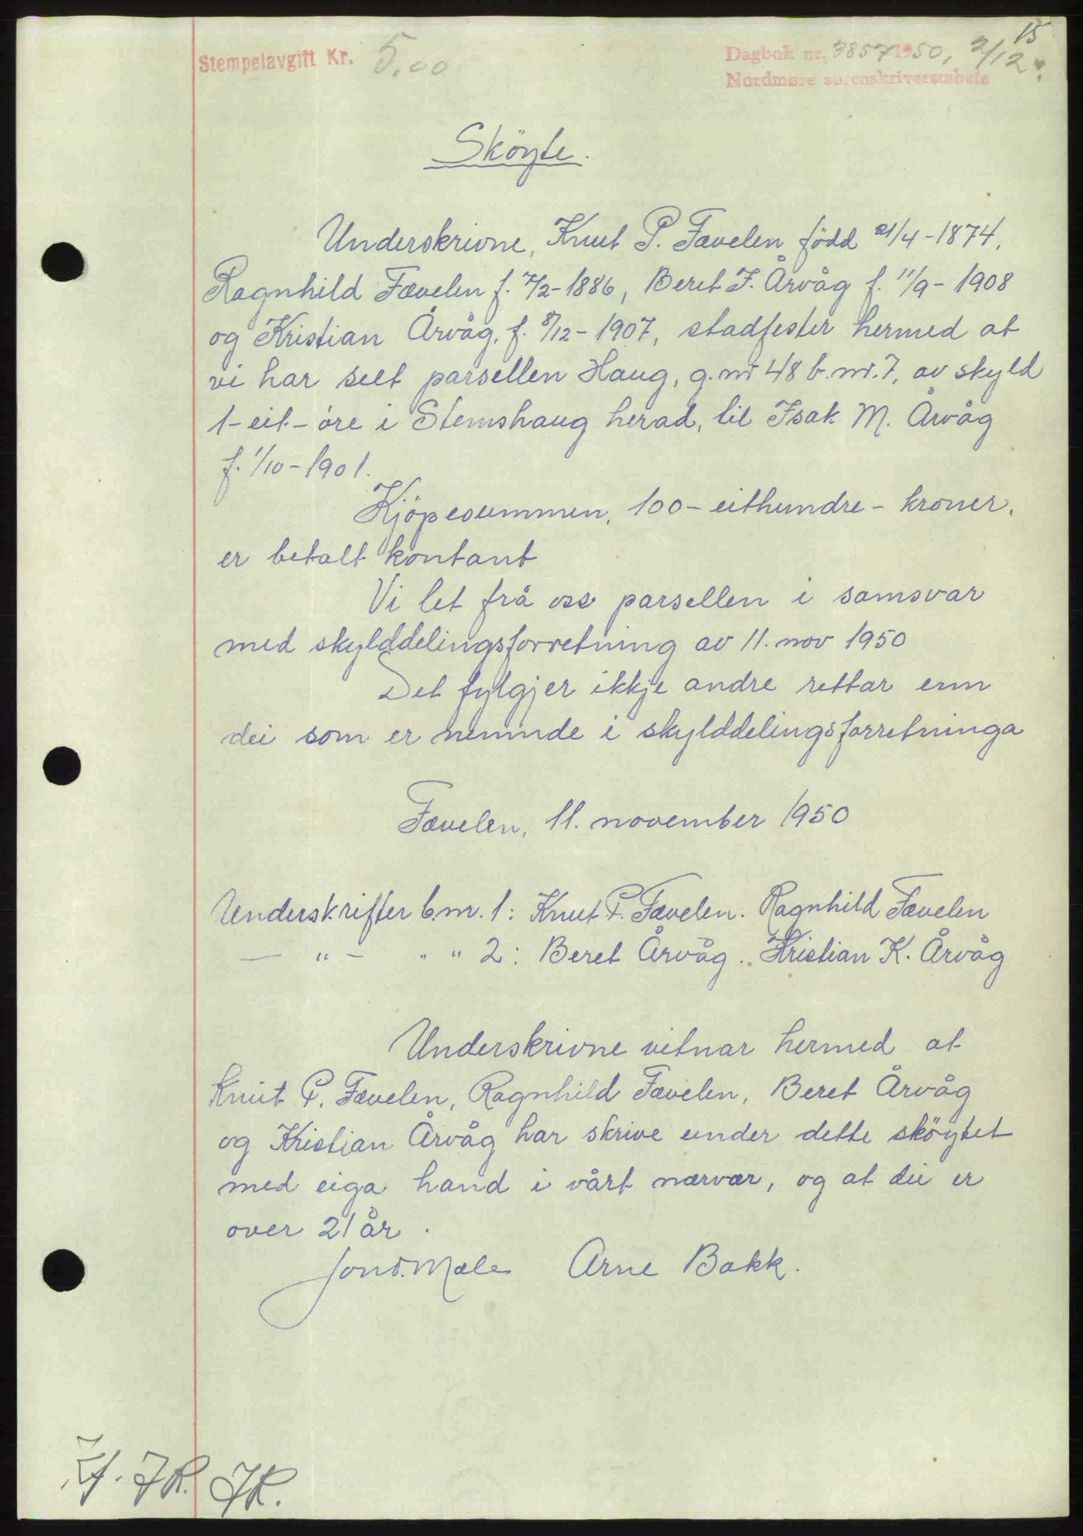 15
Stempelavgift Kr. 5.00
Dagbok nr. 3857 1950, 2/12
Nordmøre sorenskriverembete
Sköyte.
Underskrivne, Knut P. Fævelen född 21/4-1874,
Ragnhild Fævelen f. 7/2-1886, Beret J. Årvåg f. 11/9-1908
og Kristian Årvåg, f. 8/12-1907, stadfester hermed at
vi har selt parsellen Haug, g.nr 48 b.nr. 7, av skyld
1-eit-öre i Stemshaug herad, til Isak M. Årvåg
f. 1/10-1901.
Kjöpesummen, 100-eithundre-kroner,
er betalt kontant
Vi let frå oss parsellen i samsvar
med skylddelingsforretning av 11. nov 1950
Det fylgjer ikkje andre rettar enn
dei som er nemnde i skylddelingsforretninga
Fævelen, 11. november 1950
Underskrifter b.nr. 1: Knut P. Fævelen. Ragnhild Fævelen
— " — " " 2: Beret Årvåg. Kristian K. Årvåg
Underskrivne vitnar hermed at
Knut P. Fævelen, Ragnhild Fævelen, Beret Årvåg
og Kristian Årvåg har skrive under dette sköytet
med eiga hand i vårt nærvær, og at dei er
over 21 år.
Arne Bakk.
JR. JR.